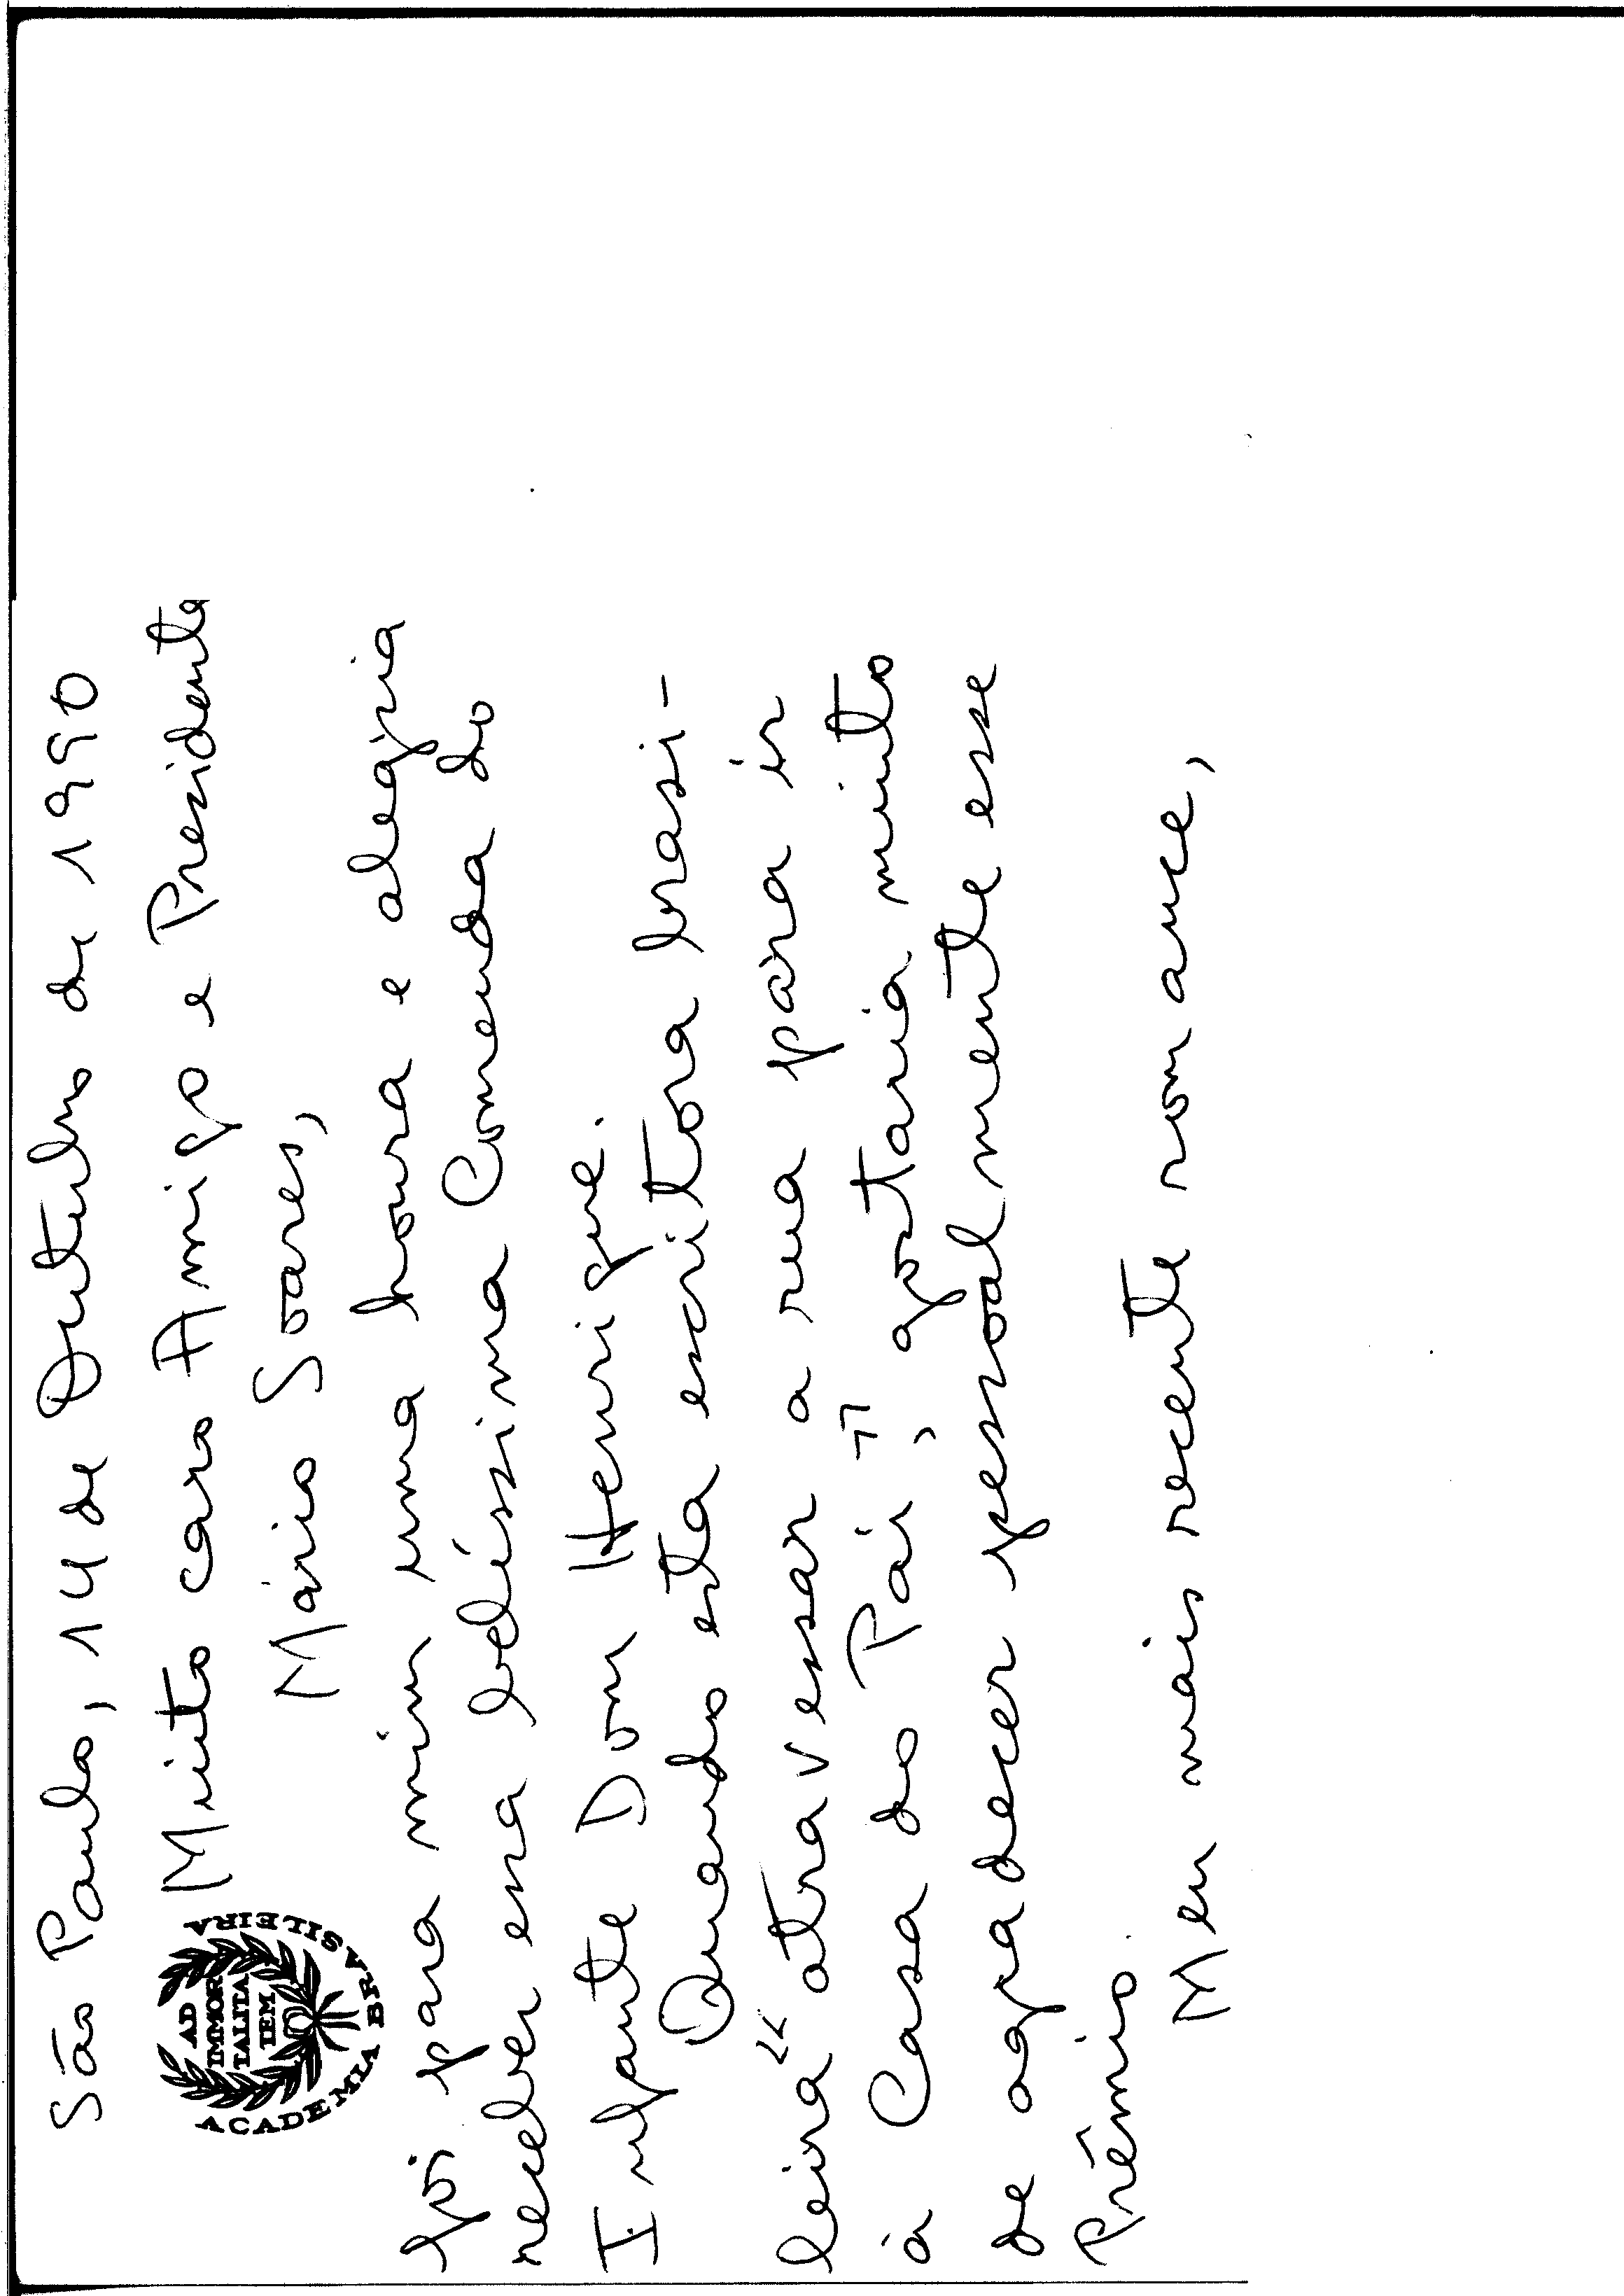 São Paulo, 14 de Outubro de 1990
ACADEMIA BRASILEIRA
AD
IMMOR
TALITA
TEM
Muito caro Amigo e Presidente
Mário Soares,
foi para mim uma honra e alegria
receber essa belíssima Comenda do
Infante Dom Henrique.
Quando esta escritora brasi-
leira "atravessar a rua para ir
à Casa do Pai", gostaria muito
de agradecer pessoalmente esse
Prêmio.
Meu mais recente romance,